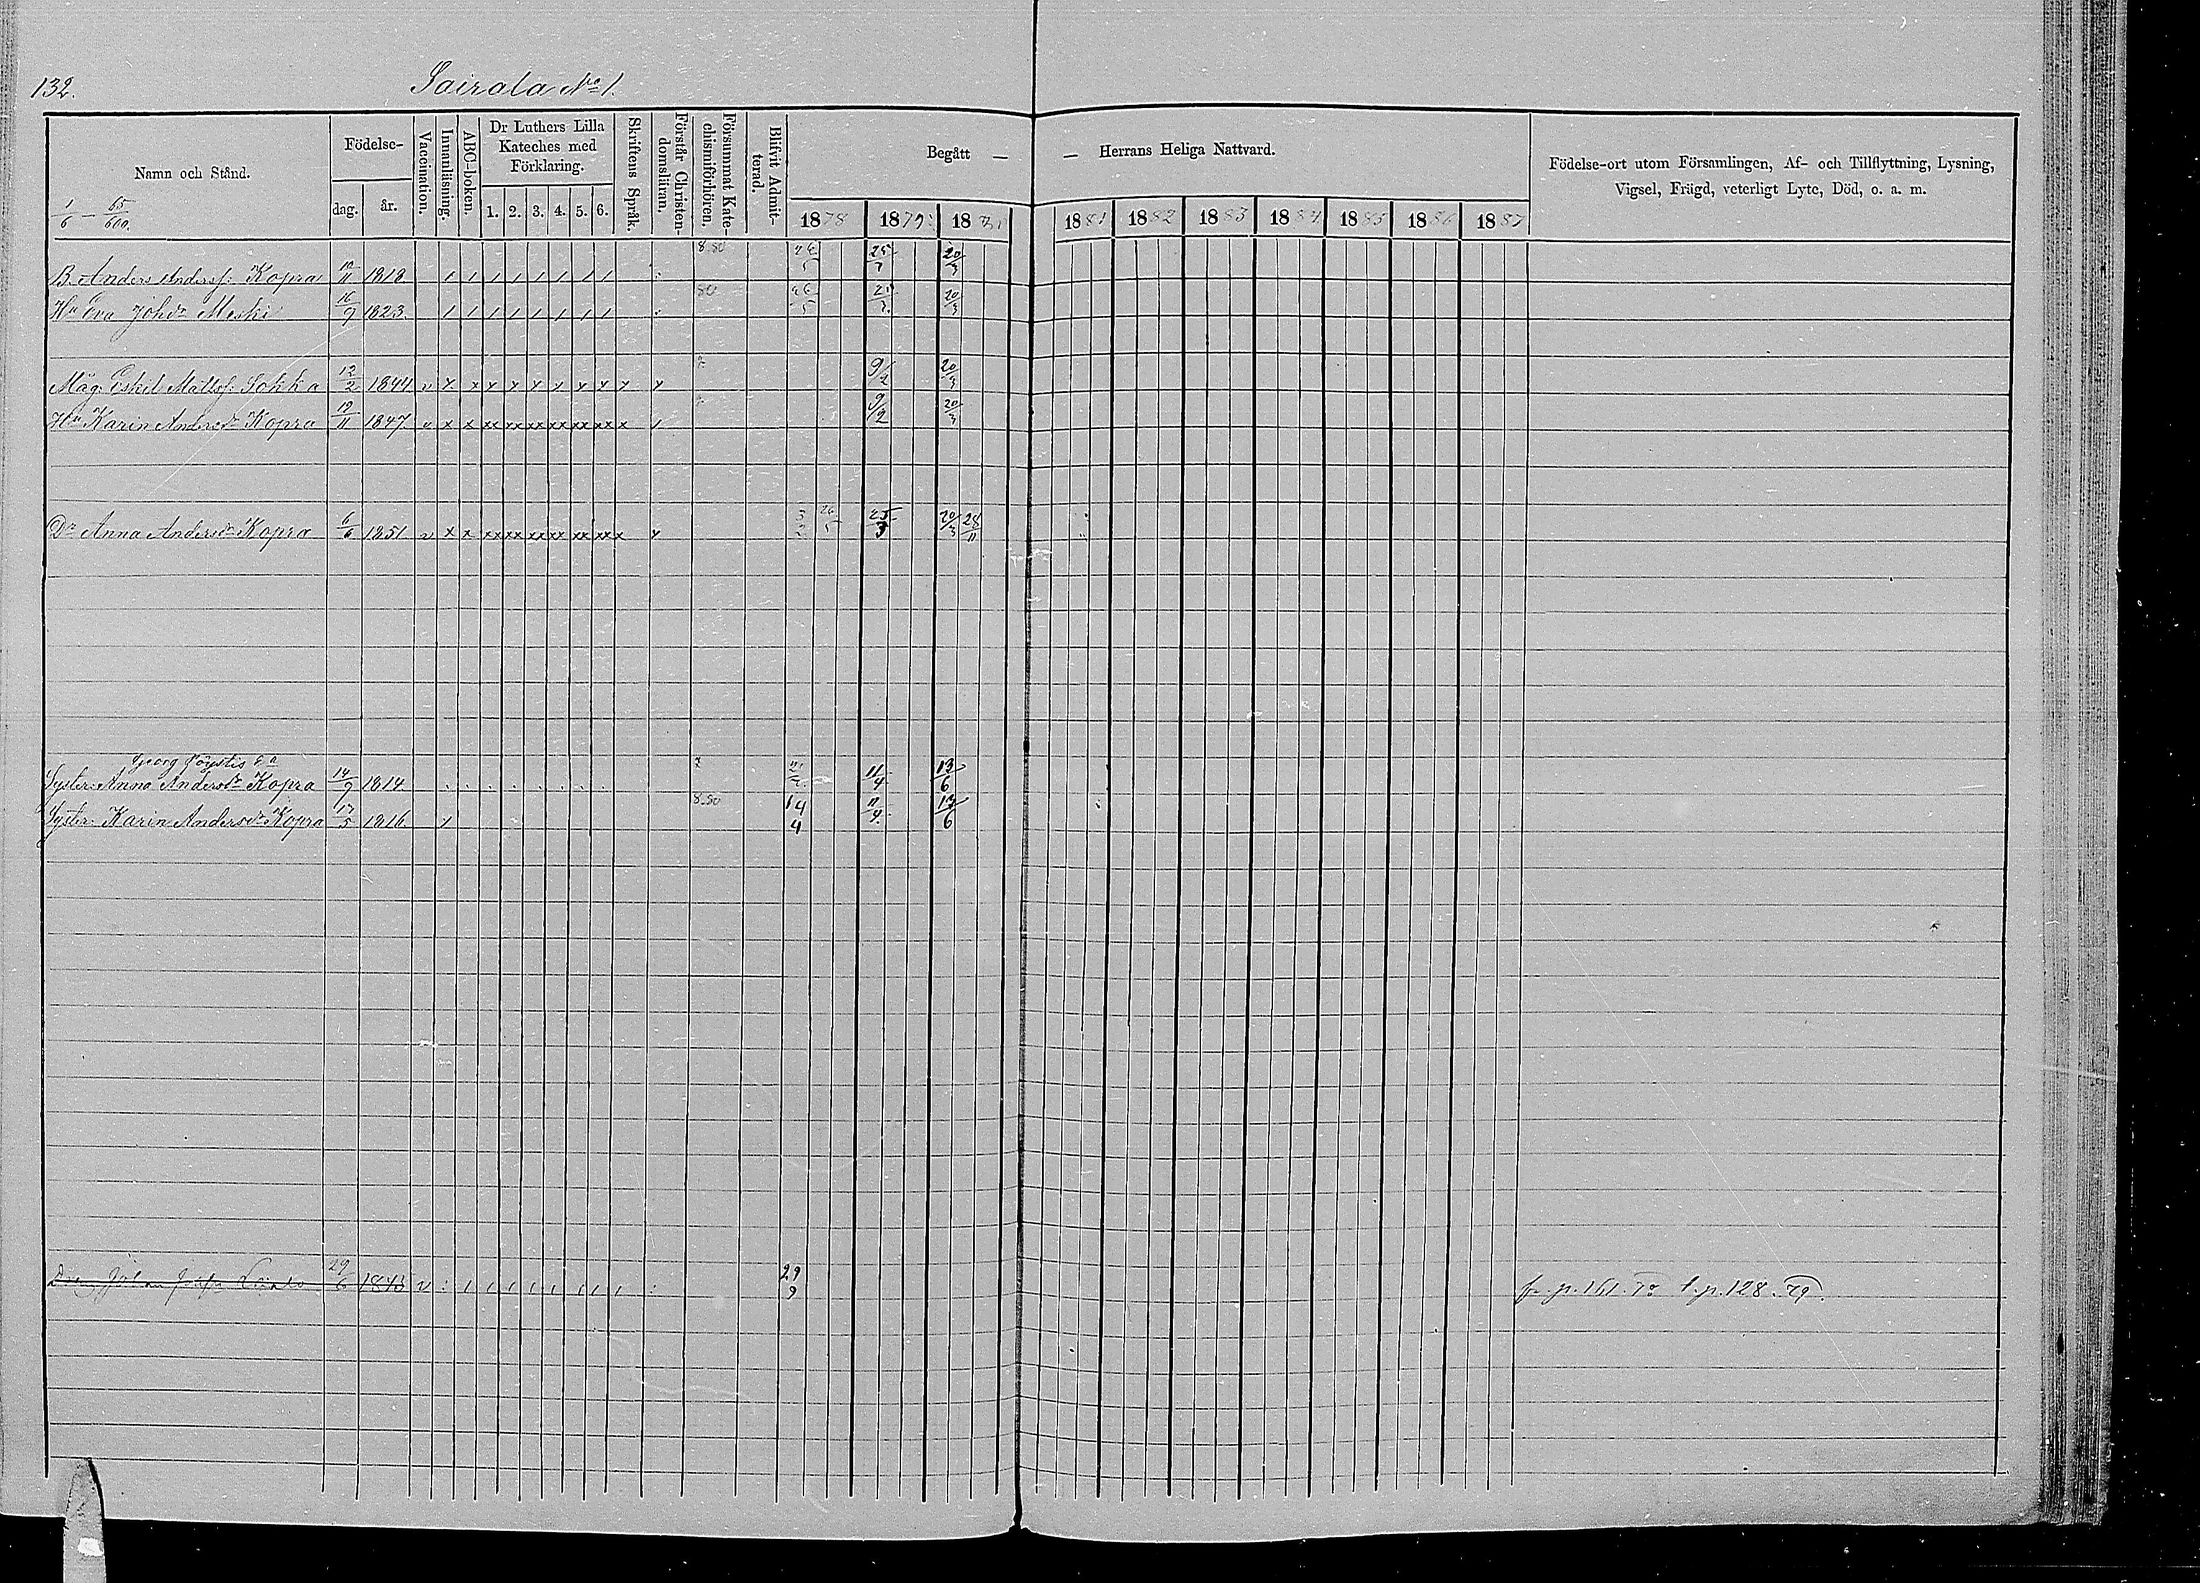 132. Sairala No 1.
Namn och Stånd.
1/6 — 65/600.
Födelse-
dag. år.
Vaccination.
Innanläsning.
ABC-boken.
Dr Luthers Lilla Kateches med Förklaring.
1. 2. 3. 4. 5. 6.
Skriftens Språk.
Förstår Christendomsläran.
Försummat Katechismiförhören.
Blifvit Admitterad.
Begått — — Herrans Heliga Nattvard.
1878 1879 18 1881 1882 1883 1884 1885 1886 1887
Födelse-ort utom Församlingen, Af- och Tillflyttning, Lysning,
Vigsel, Frägd, veterligt Lyte, Död, o. a. m.
B. Anders Anderss: Kopra 1818 8.80 25/3 20/3
Hu Eva Johdr Meski 16/9 1823. 80 20/3
Måg. Eskil Matts: Tokka 12/2 1844 v x x x x x x x x x x 9/2 20/3
Hu Karin Andersdr Kopra 19/11 1847 v x x xx xx xx xx xx xx x / 9/2 20/3
Dr Anna Andersdr Kopra 6/6 1851 v x x xx xx xx xx xx xx x x 25/3 20/3 28/11
Georg
Syster: Anna Andersdr Kopra 14/9 1814 11/4 13/6
Syster: Karin Andersdr Kopra 17/5 1816 8.80 14/4 11/4 13/6
29/6 v 29/9 fr. p. 161. 78 t. p. 128. 79.